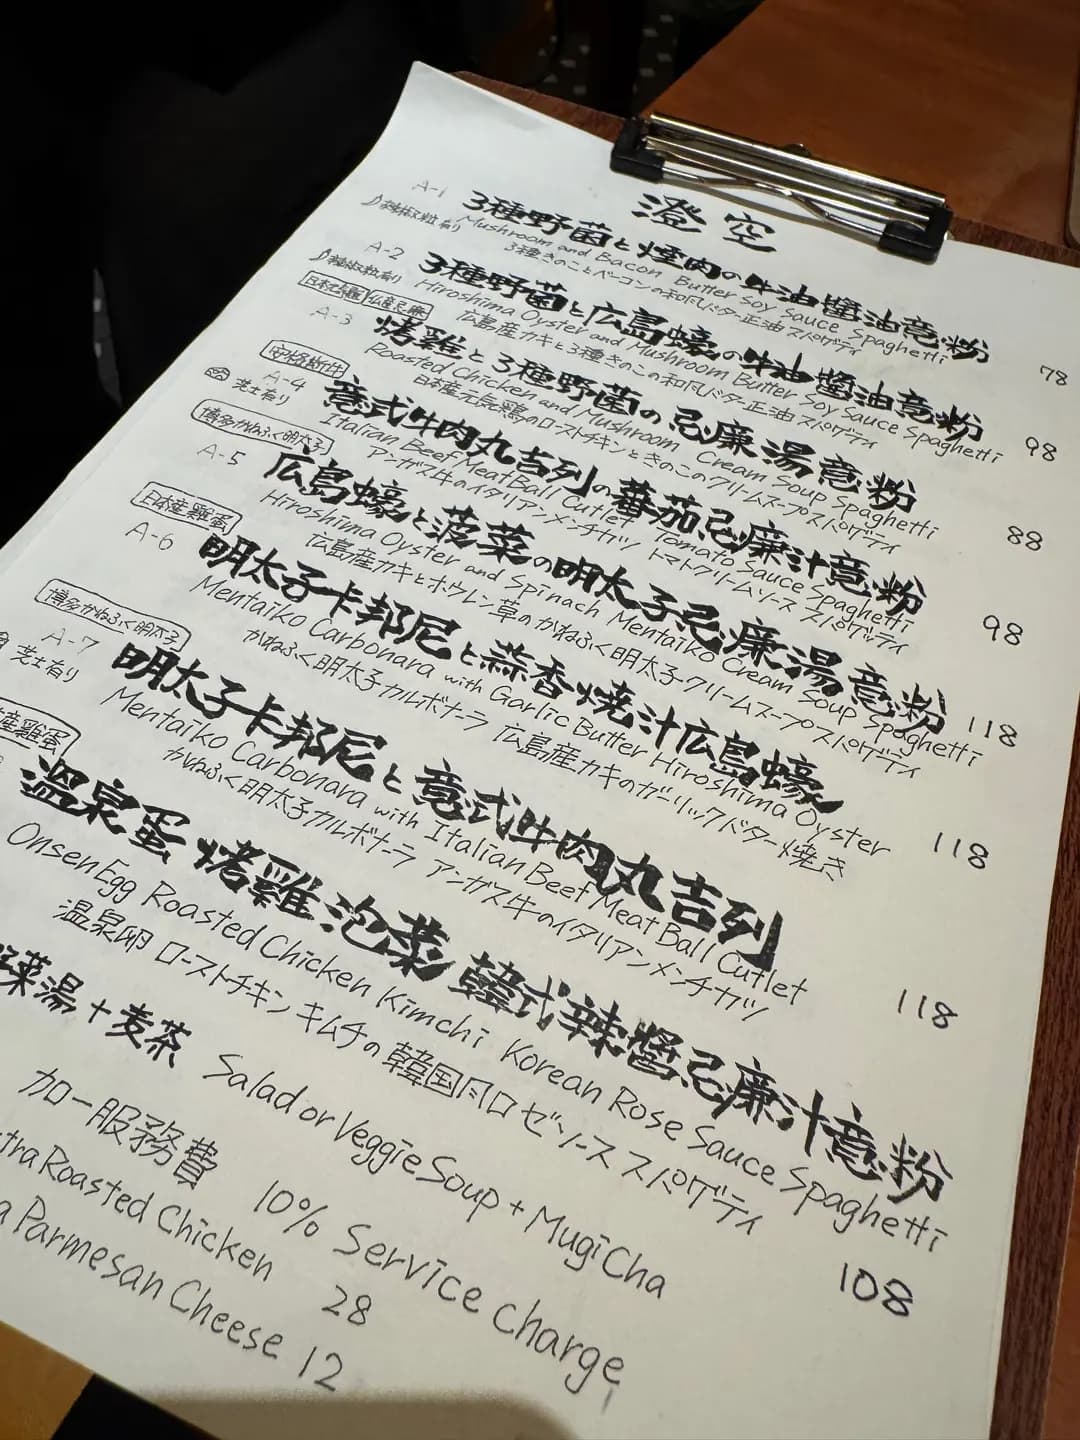 澄空
A-1 3種野菌と煙肉の牛油醬油意粉
辣椒粒有り
Mushroom and Bacon Butter Soy Sauce Spaghetti
3種きのことベーコンの和風バター正油スパゲティ
78
A-2 3種野菌と広島蠔の牛油醬油意粉
辣椒粒有り
Hiroshima Oyster and Mushroom Butter Soy Sauce Spaghetti
広島産カキと3種きのこの和風バター正油スパゲティ
98
A-3 烤雞と3種野菌の忌廉湯意粉
Roasted Chicken and Mushroom Cream Soup Spaghetti
日本産元長鶏のローストチキンときのこのクリームスープスパゲティ
88
安格斯牛
A-4 意式牛肉丸吉列の蕃茄忌廉汁意粉
芝士有り
Italian Beef Meat Ball Cutlet Tomato Sauce Spaghetti
アンガス牛のイタリアンメンチカツ トマトクリームソース スパゲッティ
98
博多かねふく明太子
A-5 広島蠔と菠菜の明太子忌廉湯意粉
Hiroshima Oyster and Spinach Mentaiko Cream Soup Spaghetti
広島産カキとホウレン草のかねふく明太子クリームスープスパゲティ
118
日本産雞蛋
A-6 明太子卡邦尼と蒜香焼汁広島蠔
Mentaiko Carbonara with Garlic Butter Hiroshima Oyster
かねふく明太子カルボナーラ 広島産カキのガーリックバター焼き
118
博多かねふく明太子
A-7 明太子卡邦尼と意式牛肉丸吉列
芝士有り
Mentaiko Carbonara with Italian Beef Meat Ball Cutlet
かねふく明太子カルボナーラ アンガス牛のイタリアンメンチカツ
118
産雞蛋
溫泉蛋 烤雞泡菜 韓式辣醬忌廉汁意粉
Onsen Egg Roasted Chicken Kimchi Korean Rose Sauce Spaghetti
温泉卵 ローストチキン キムチの韓国風ロゼソース スパゲティ
108
菜湯+麦茶 Salad or Veggie Soup + MugiCha
加一服務費 10% Service Charge
tra Roasted Chicken 28
a Parmesan Cheese 12